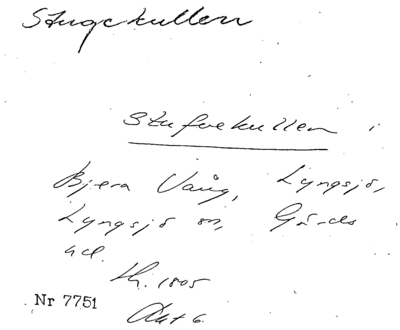 Stugekullen
Stufvekullen i
Bjera Vång, Lyngsjö,
Lyngsjö sn, Gärds
hd.
Lh. 1805
Nr 7751
Akt 6.